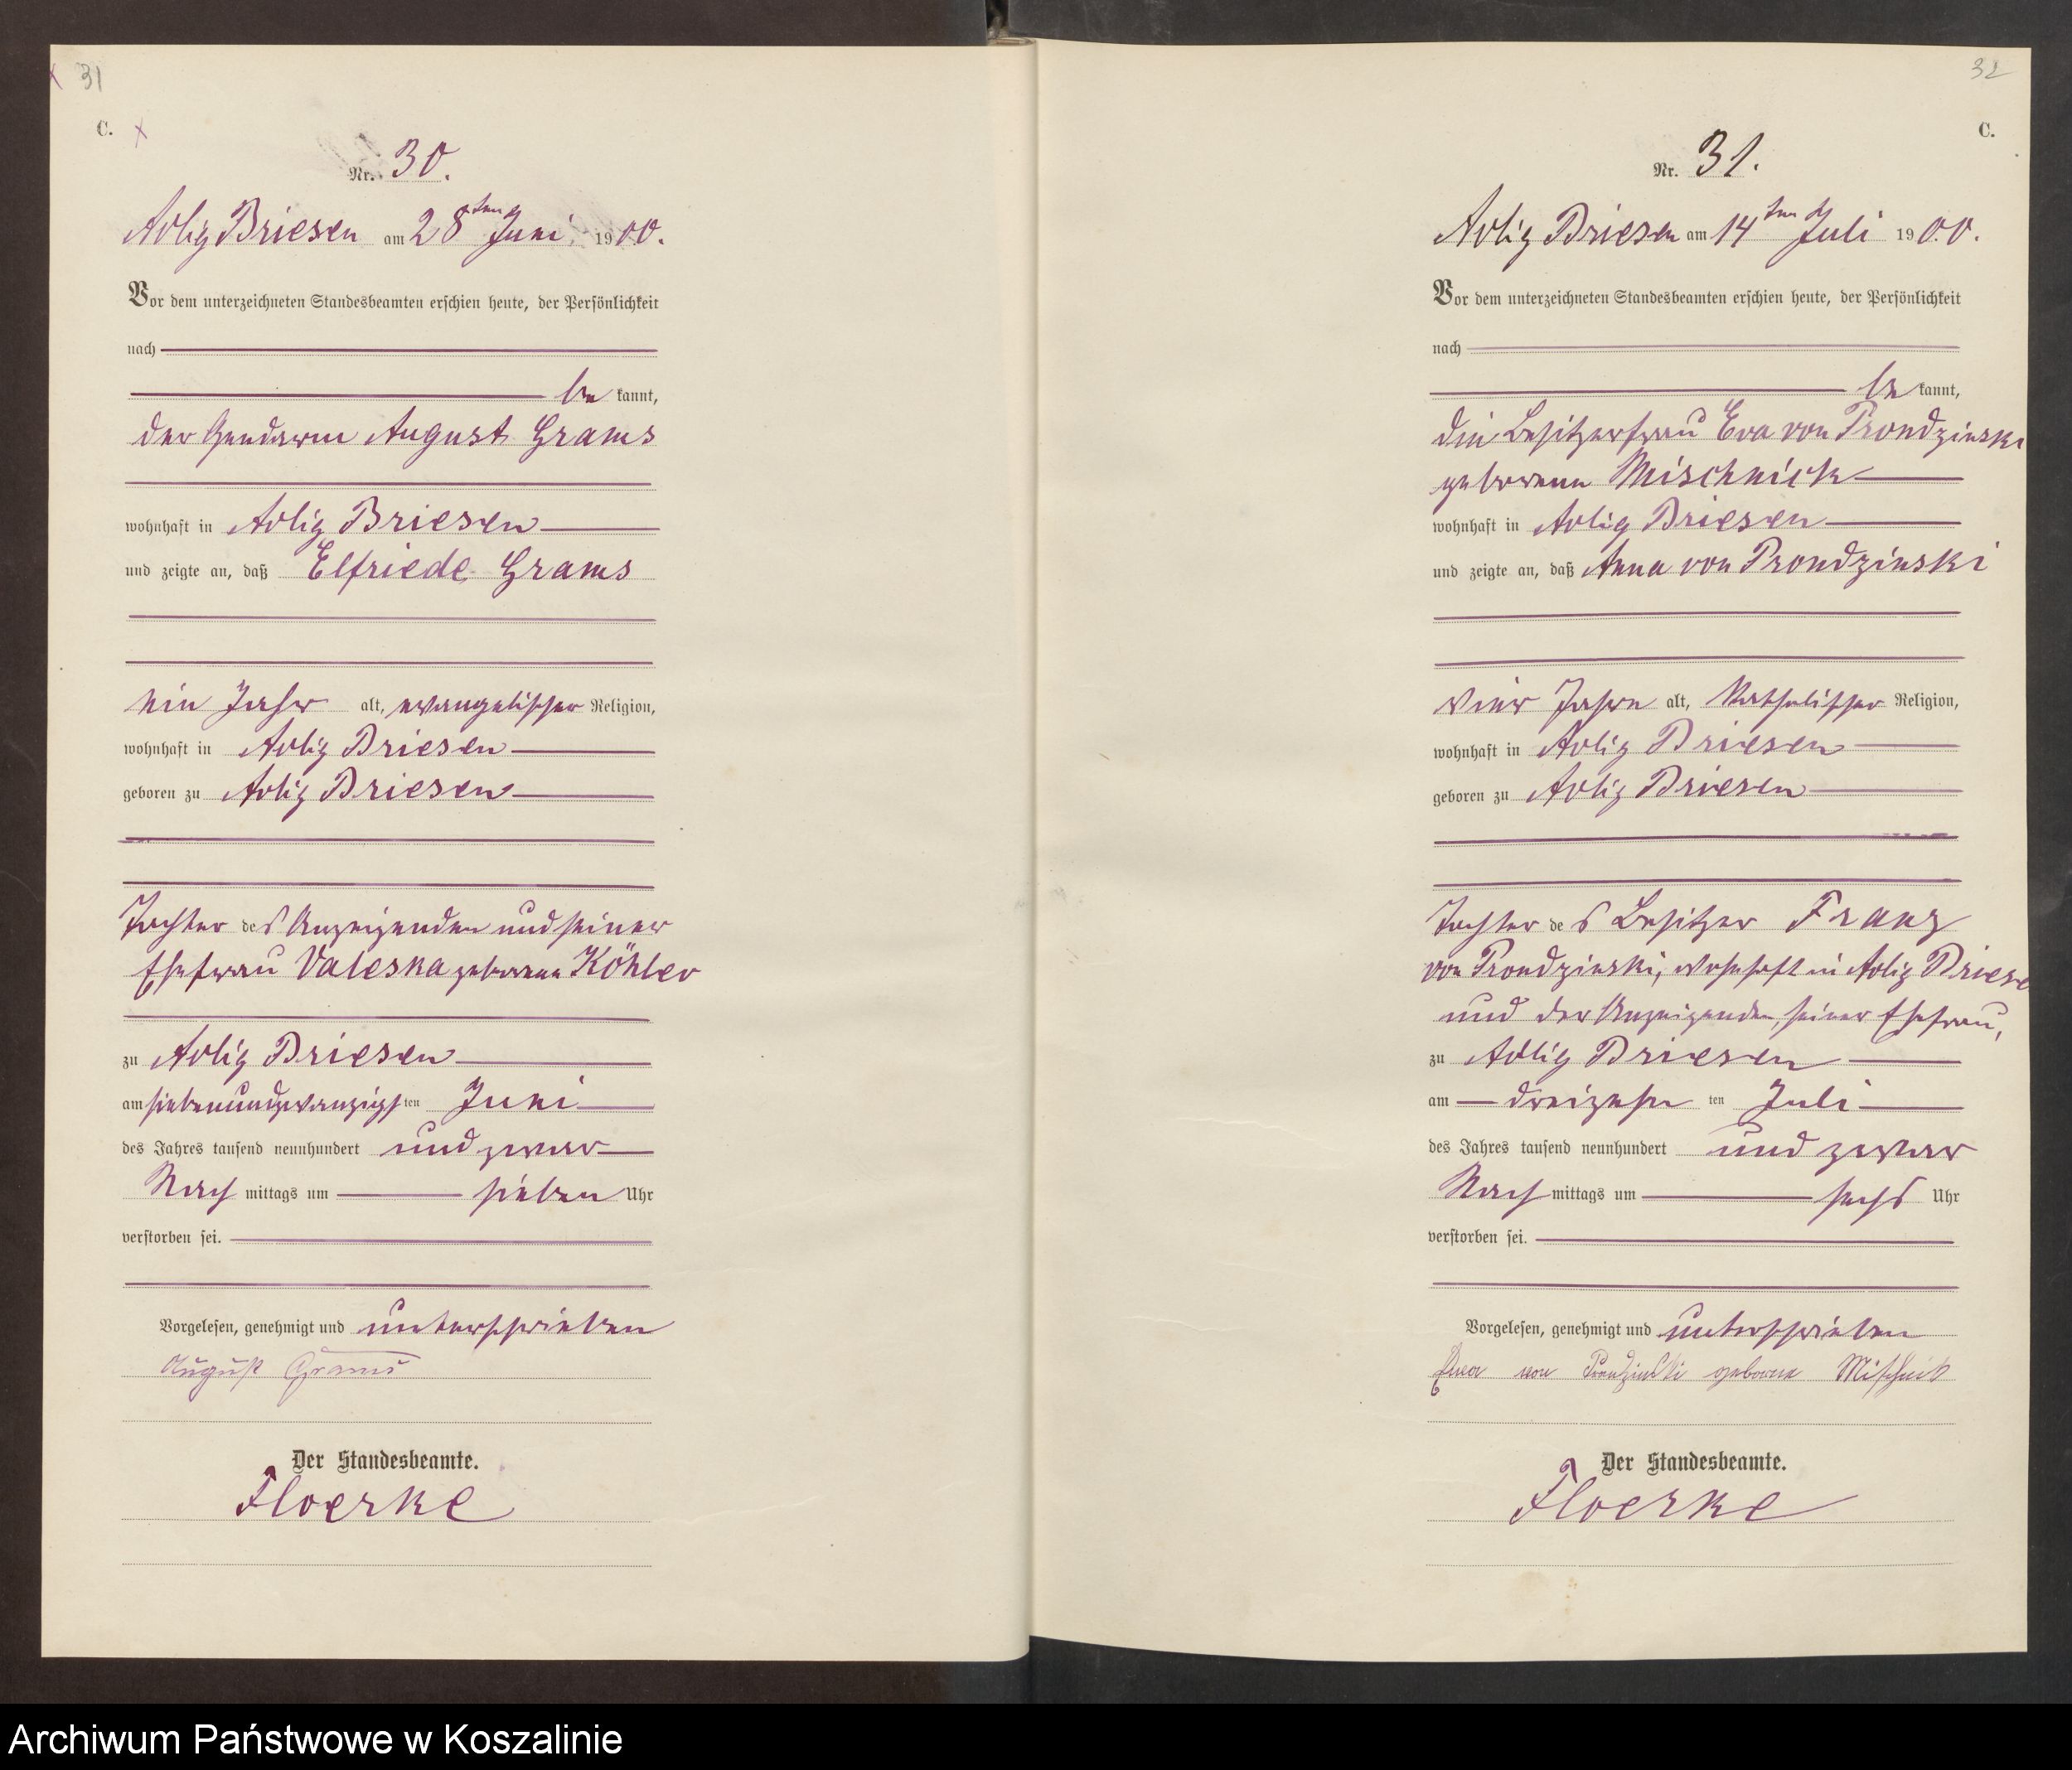 31
C.
Nr. 30.
Adlig Briesen am 28ten Juni 1900.
Vor dem unterzeichneten Standesbeamten erschien heute, der Persönlichkeit
nach
be kannt,
der Gendarm August Grams
wohnhaft in Adlig Briesen
und zeigte an, daß Elfriede Grams
ein Jahr alt, evangelischer Religion,
wohnhaft in Adlig Briesen
geboren zu Adlig Briesen
Tochter des Anzeigenden und seiner
Ehefrau Valeska geborene Köhler
zu Adlig Briesen
am siebenundzwanzigsten Juni
des Jahres tausend neunhundert und zwar
Nach mittags um sieben Uhr
verstorben sei.
Vorgelesen, genehmigt und unterschrieben
August Grams
Der Standesbeamte.
Floerke
32
C.
Nr. 31.
Adlig Briesen am 14ten Juli 1900.
Vor dem unterzeichneten Standesbeamten erschien heute, der Persönlichkeit
nach
be kannt,
die Besitzerfrau Eva von Prondzinski
geborene Mischnick
wohnhaft in Adlig Briesen
und zeigte an, daß Anna von Prondzinski
vier Jahre alt, katholischer Religion,
wohnhaft in Adlig Briesen
geboren zu Adlig Briesen
Tochter des Besitzer Franz
von Prondzinski, wohnhaft in Adlig Briese
und der Anzeigenden, seiner Ehefrau,
zu Adlig Briesen
am dreizehn ten Juli
des Jahres tausend neunhundert und zwar
Nach mittags um sechs Uhr
verstorben sei.
Vorgelesen, genehmigt und unterschrieben
Ewa von Prondzinski geborene Mischnik
Der Standesbeamte.
Floerke
Archiwum Państwowe w Koszalinie